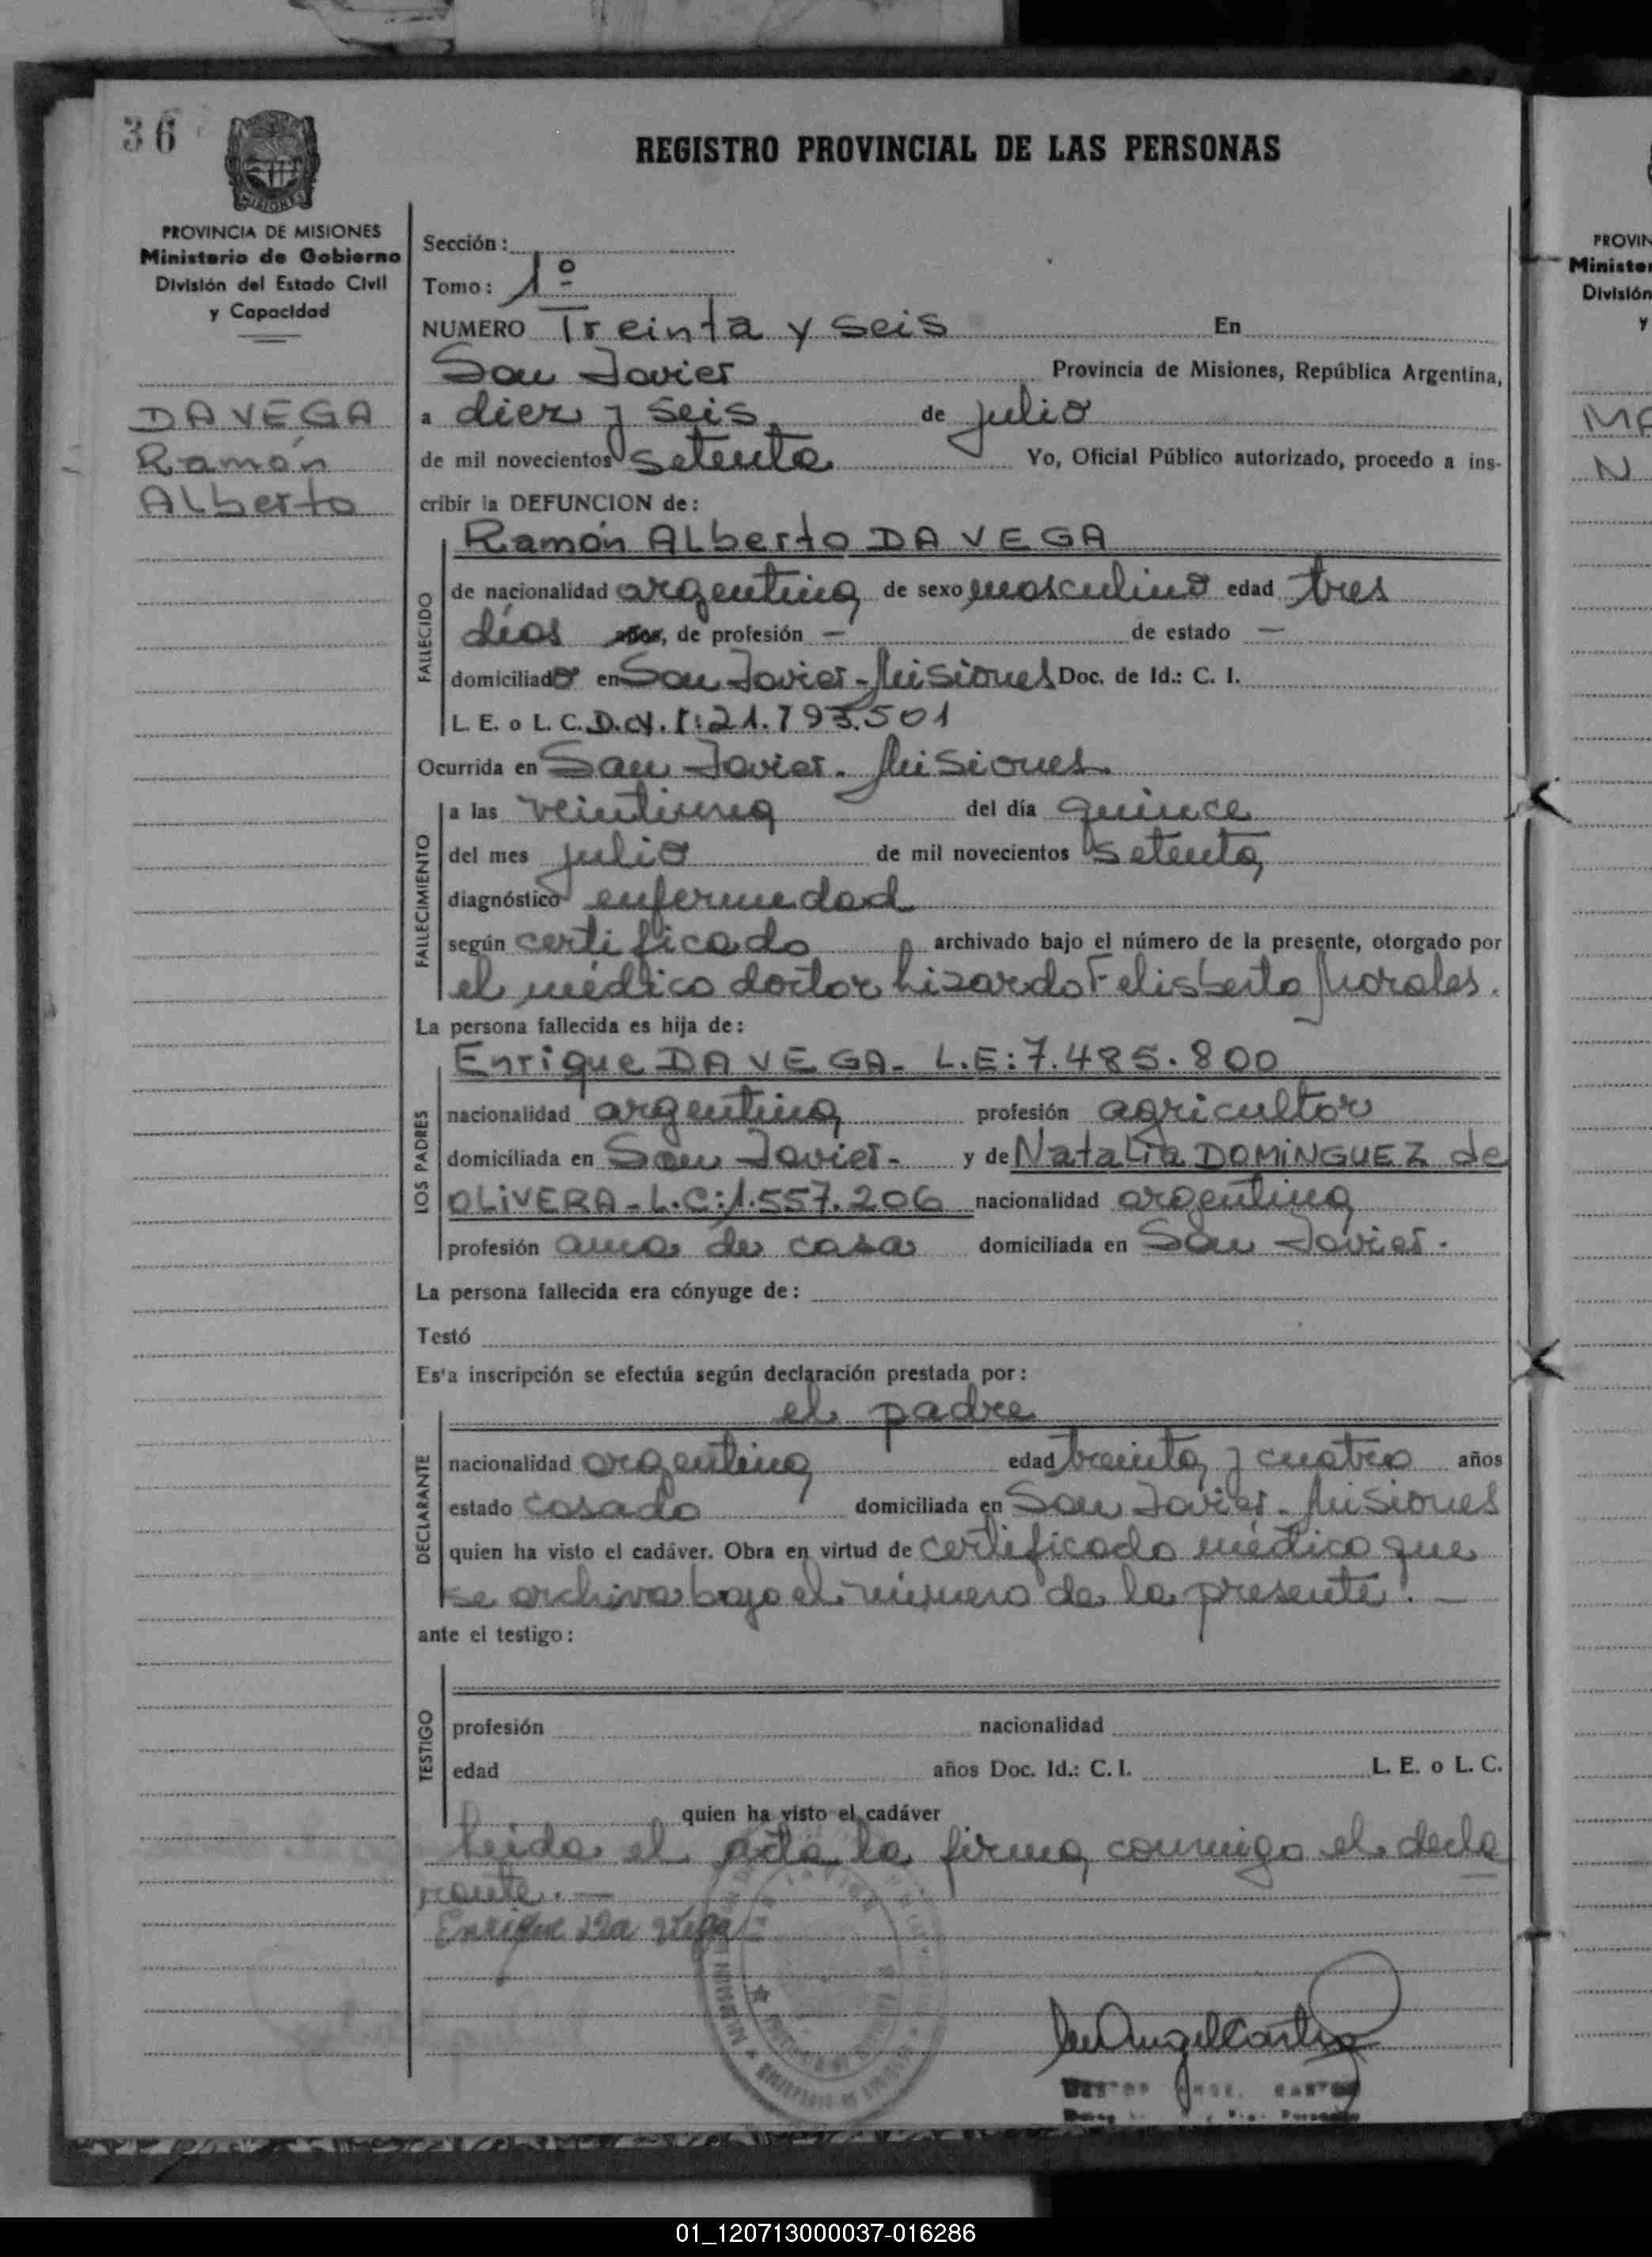 36
REGISTRO PROVINCIAL DE LAS PERSONAS
MISIONES
PROVINCIA DE MISIONES
Ministerio de Gobierno
División del Estado Civil
y Capacidad
DA VEGA
Ramón
Alberto
Sección:
Tomo: 1º
NUMERO Treinta y seis En
San Javier Provincia de Misiones, República Argentina,
a diez y seis de julio
de mil novecientos setenta Yo, Oficial Público autorizado, procedo a ins-
cribir la DEFUNCION de:
Ramón ALberto DA VEGA
FALLECIDO
de nacionalidad argentina de sexo masculino edad tres
días años, de profesión — de estado —
domiciliado en San Javier - Misiones Doc. de Id.: C. I.
L. E. o L. C. D.N.I: 21.793.501
Ocurrida en San Javier - Misiones.
FALLECIMIENTO
a las veintiuna del día quince
del mes julio de mil novecientos setenta
diagnóstico enfermedad
según certificado archivado bajo el número de la presente, otorgado por
el médico doctor Lizardo Felisberto Morales.
La persona fallecida es hija de:
LOS PADRES
Enrique DA VEGA - L.E: 7.485.800
nacionalidad argentina profesión agricultor
domiciliada en San Javier - y de Natalia DOMINGUEZ de
OLIVERA - L.C: 1.557.206 nacionalidad argentina
profesión ama de casa domiciliada en San Javier.
La persona fallecida era cónyuge de:
Testó
Esta inscripción se efectúa según declaración prestada por:
el padre
DECLARANTE
nacionalidad argentina edad treinta y cuatro años
estado casado domiciliada en San Javier - Misiones
quien ha visto el cadáver. Obra en virtud de certificado médico que
se archiva bajo el número de la presente. —
ante el testigo:
TESTIGO
profesión nacionalidad
edad años Doc. Id.: C. I. L. E. o L. C.
quien ha visto el cadáver
Leida el acta la firma conmigo el decla
rante. —
Enrique Da Vega
PROVIN
Minister
División
y
MA
N
01_120713000037-016286